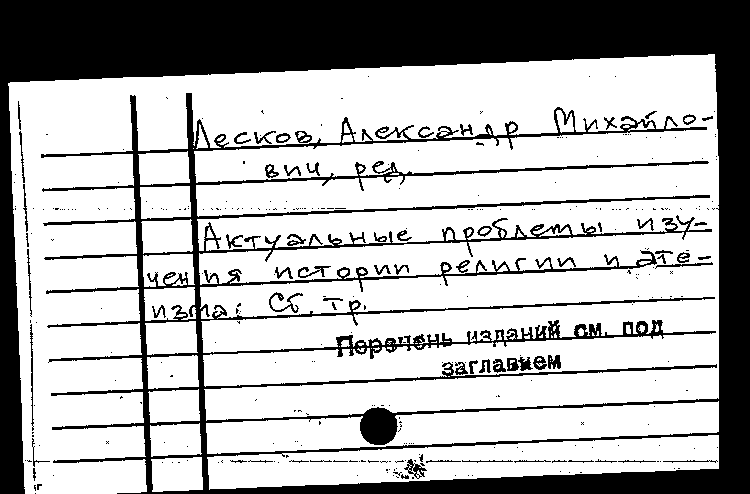 Лесков, Александр Михайло-
вич, ред.
Актуальные проблемы изу-
чения истории религии и ате-
изма: Сб. тр.
Перечень изданий см. под
заглавием